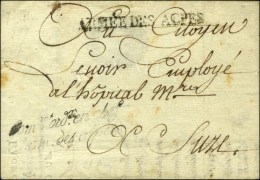 ARMÉE DES ALPES
Au Citoyen
Lenoir Employé
a l'hôpital M.re
A Suze.